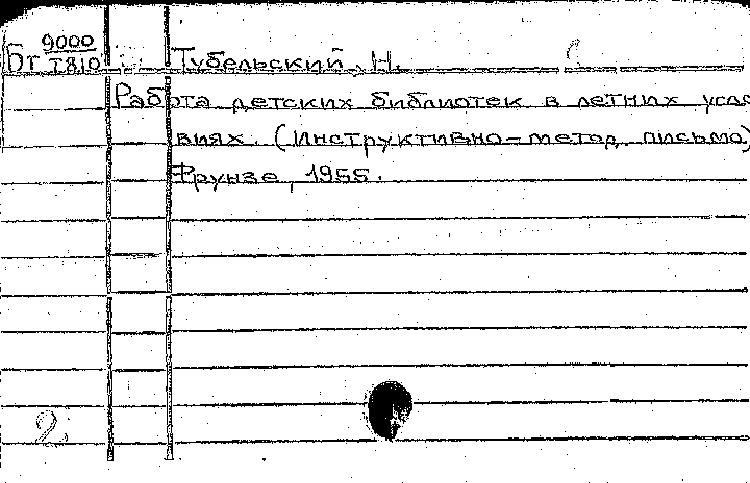 Бт 9000
Т810
Тубельский, Н.
Работа детских библиотек в летних усло
виях. (Инструктивно-метод. письмо)
Фрунзе, 1955.
2